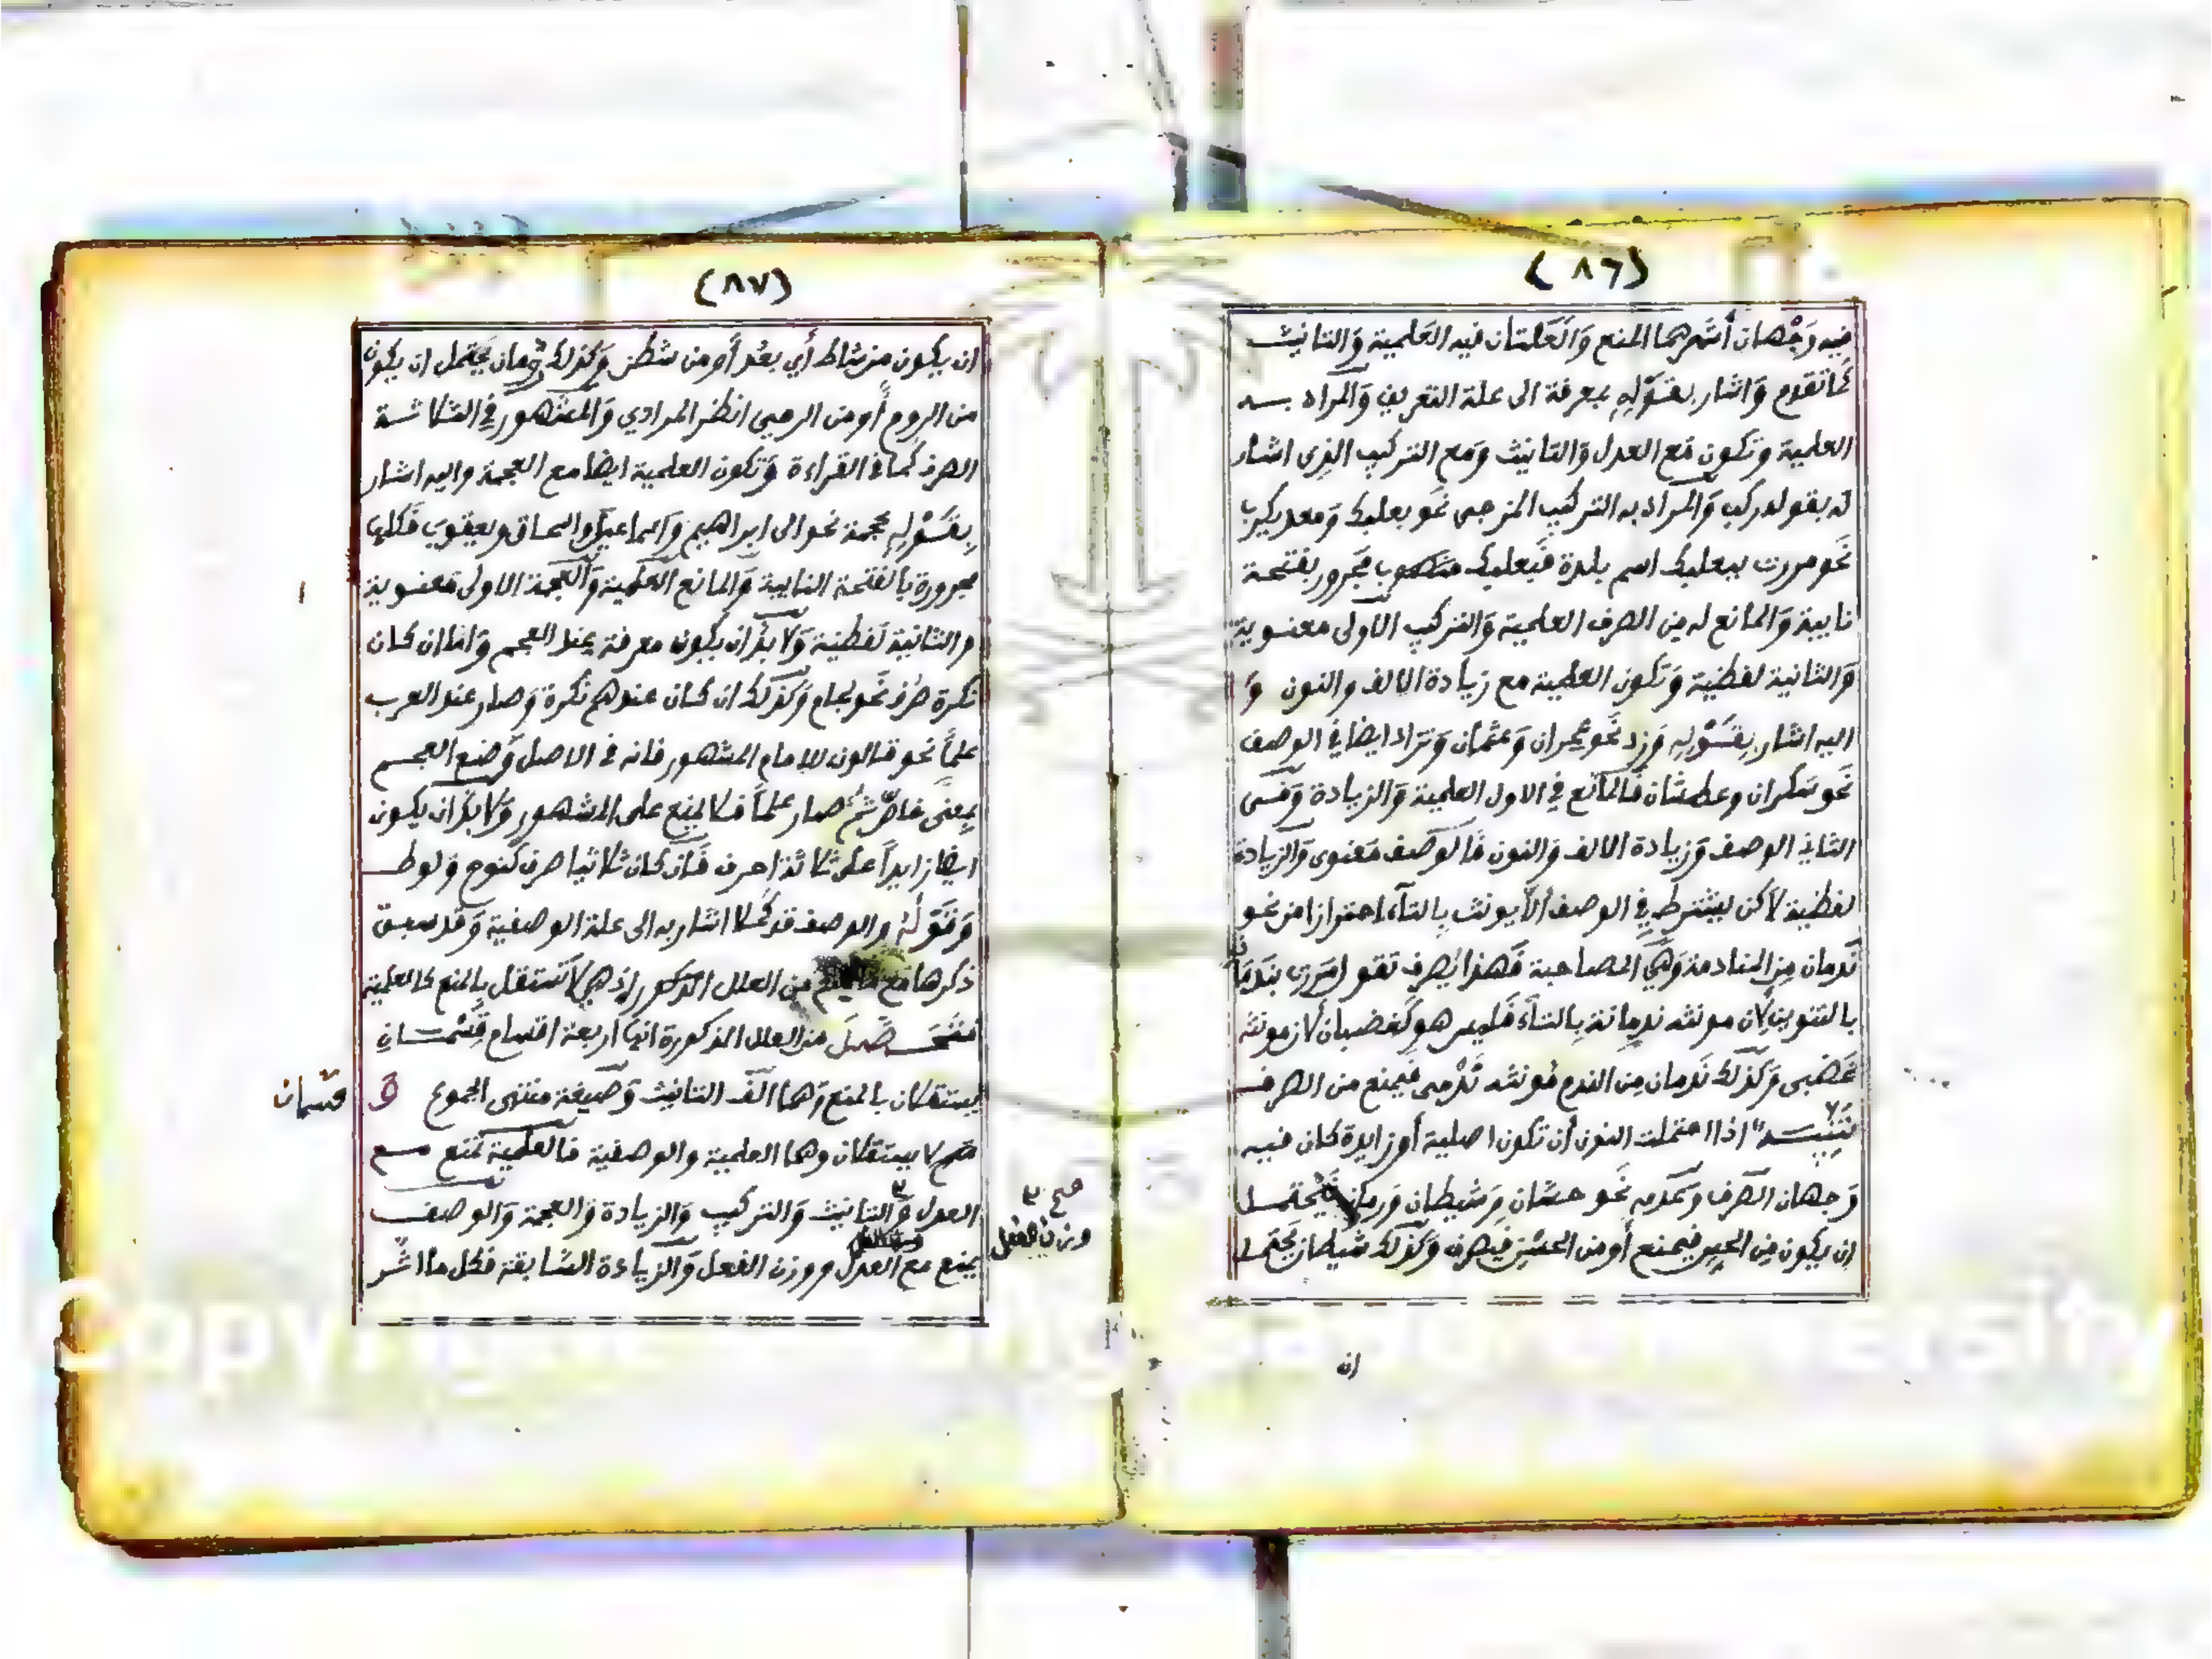 (٨٦)
فيه وَجْهان أشهرهما المنع وَالعَلتان فيه العَلمية وَالتانيث
كما تقدم وَاشار بقَوْلِهِ بمعرفة الى علة التعريف وَالمراد بــه
العلمية وتكون مَع العدل وَالتانيث وَمَع التركيب الذى اشار
له بقوله ركب وَالمراد به التركيب المزجى نحو بعلبك وَمعديكرب
نَحو مررت ببعلبك اسم بلدة فَبعلبك مَجرور بفتحة
نايبة وَالمانع له مِن الصرف العلمية وَالتركيب الاولى معنوية
وَالثانية لفظية وَتكون العلمية مع زيادة الالف والنون وَ
اليه اشار بِقَوْلِهِ وَزد نَحو عمران وَعثمان وَتزاد ايضا في الوصف
نَحو سَكران وعطشان فَالمانع في الاول العلمية وَالزيادة وَفـى
الثاني الوصف وَزيادة الالف وَالنون فَالوَصف مَعنوى وَالزيادة
لفظية لاكن يشترط في الوصف ألا يونث بِالتآء احترازا من نحو
نَدمان مِن المنادمة وَهي المصاحبة فَهذا يُصرف تقول مَررت بندمان
بالتنوين لان مونثه ندمانة بِالتآء فَليس هو كَغضبان لان مونثه
غَضبى وَكذلك نَدمان مِن الندم فمونثه نَدْمى فيمنع من الصرف
تَنْبِيــه اذا احتملت النون أن تكون اصلية أو زايدة كان فيــه
وَجهان الصَرف وَعَدمه نَحو حسَّان وَشيطان وَرمان فَيحتمــل
ان يكون مِن الحِس فيمنع أو من الحسْن فيصرف وَكذلك شيطان يَحتمــل
ان
(٨٧)
ان يكون من شاط أي بعُد أو من شطن وَكذلك رُمان يَحتمل ان يكون
من الروم أو من الرمي انظر المرادي وَالمشهور في الثلاثــة
الصرف كَما في القراءة وَتكون العلمية ايضا مع العجمة واليه اشار
بِقَوْلِهِ عجمة نحو الى ابراهيم وَاسماعيل واسحاق ويعقوب فَكلها
مجرورة بالفتحة النايبة وَالمانع العَلمية وَالعجمة الاولى مَعنــوية
والثانية لَفظية وَلا بدَّ ان يكون معرفة عِند العجم وَاما ان كان
نكرة صُرف نَحو لجام وَكذلك ان كان عندهم نكرة وَصار عند العرب
علماً نحو قالون للامام المشهور فانه في الاصل وَضع العجــم
بِمعنَى فاضِل ثمَّ صار علماً فَلا يمنع على المشهور وَلا بدَّ ان يكون
ايضا زايداً على ثلاثة احرف فَان كان ثلاثيا صرف كنوح وَلوط
وَقَوْلُهُ والوصف قد كَملا اشار به الى علة الوصفية وَقد سبق
ذكرها مَع من العلل اذ هي لا تستقل بالمنع كالعلمية
فتحَــصَّــل من العلل المذكورة انها اربعة اقسام قِسْمــان
يستقلان بالمنع وَهما الف التانيث وَصيغة منتهى الجموع وَ
قسمان
لا يستقلان وهما العلمية والوصفية فالعَلمية تمنع مــع
العدل وَالتانيث وَالتركيب وَالزيادة وَالعجمة وَالوصف
صح
وزن الفعل
يمنع مع العدل ووزن الفعل وَالزيادة السَّابقة فكل ما اشــر